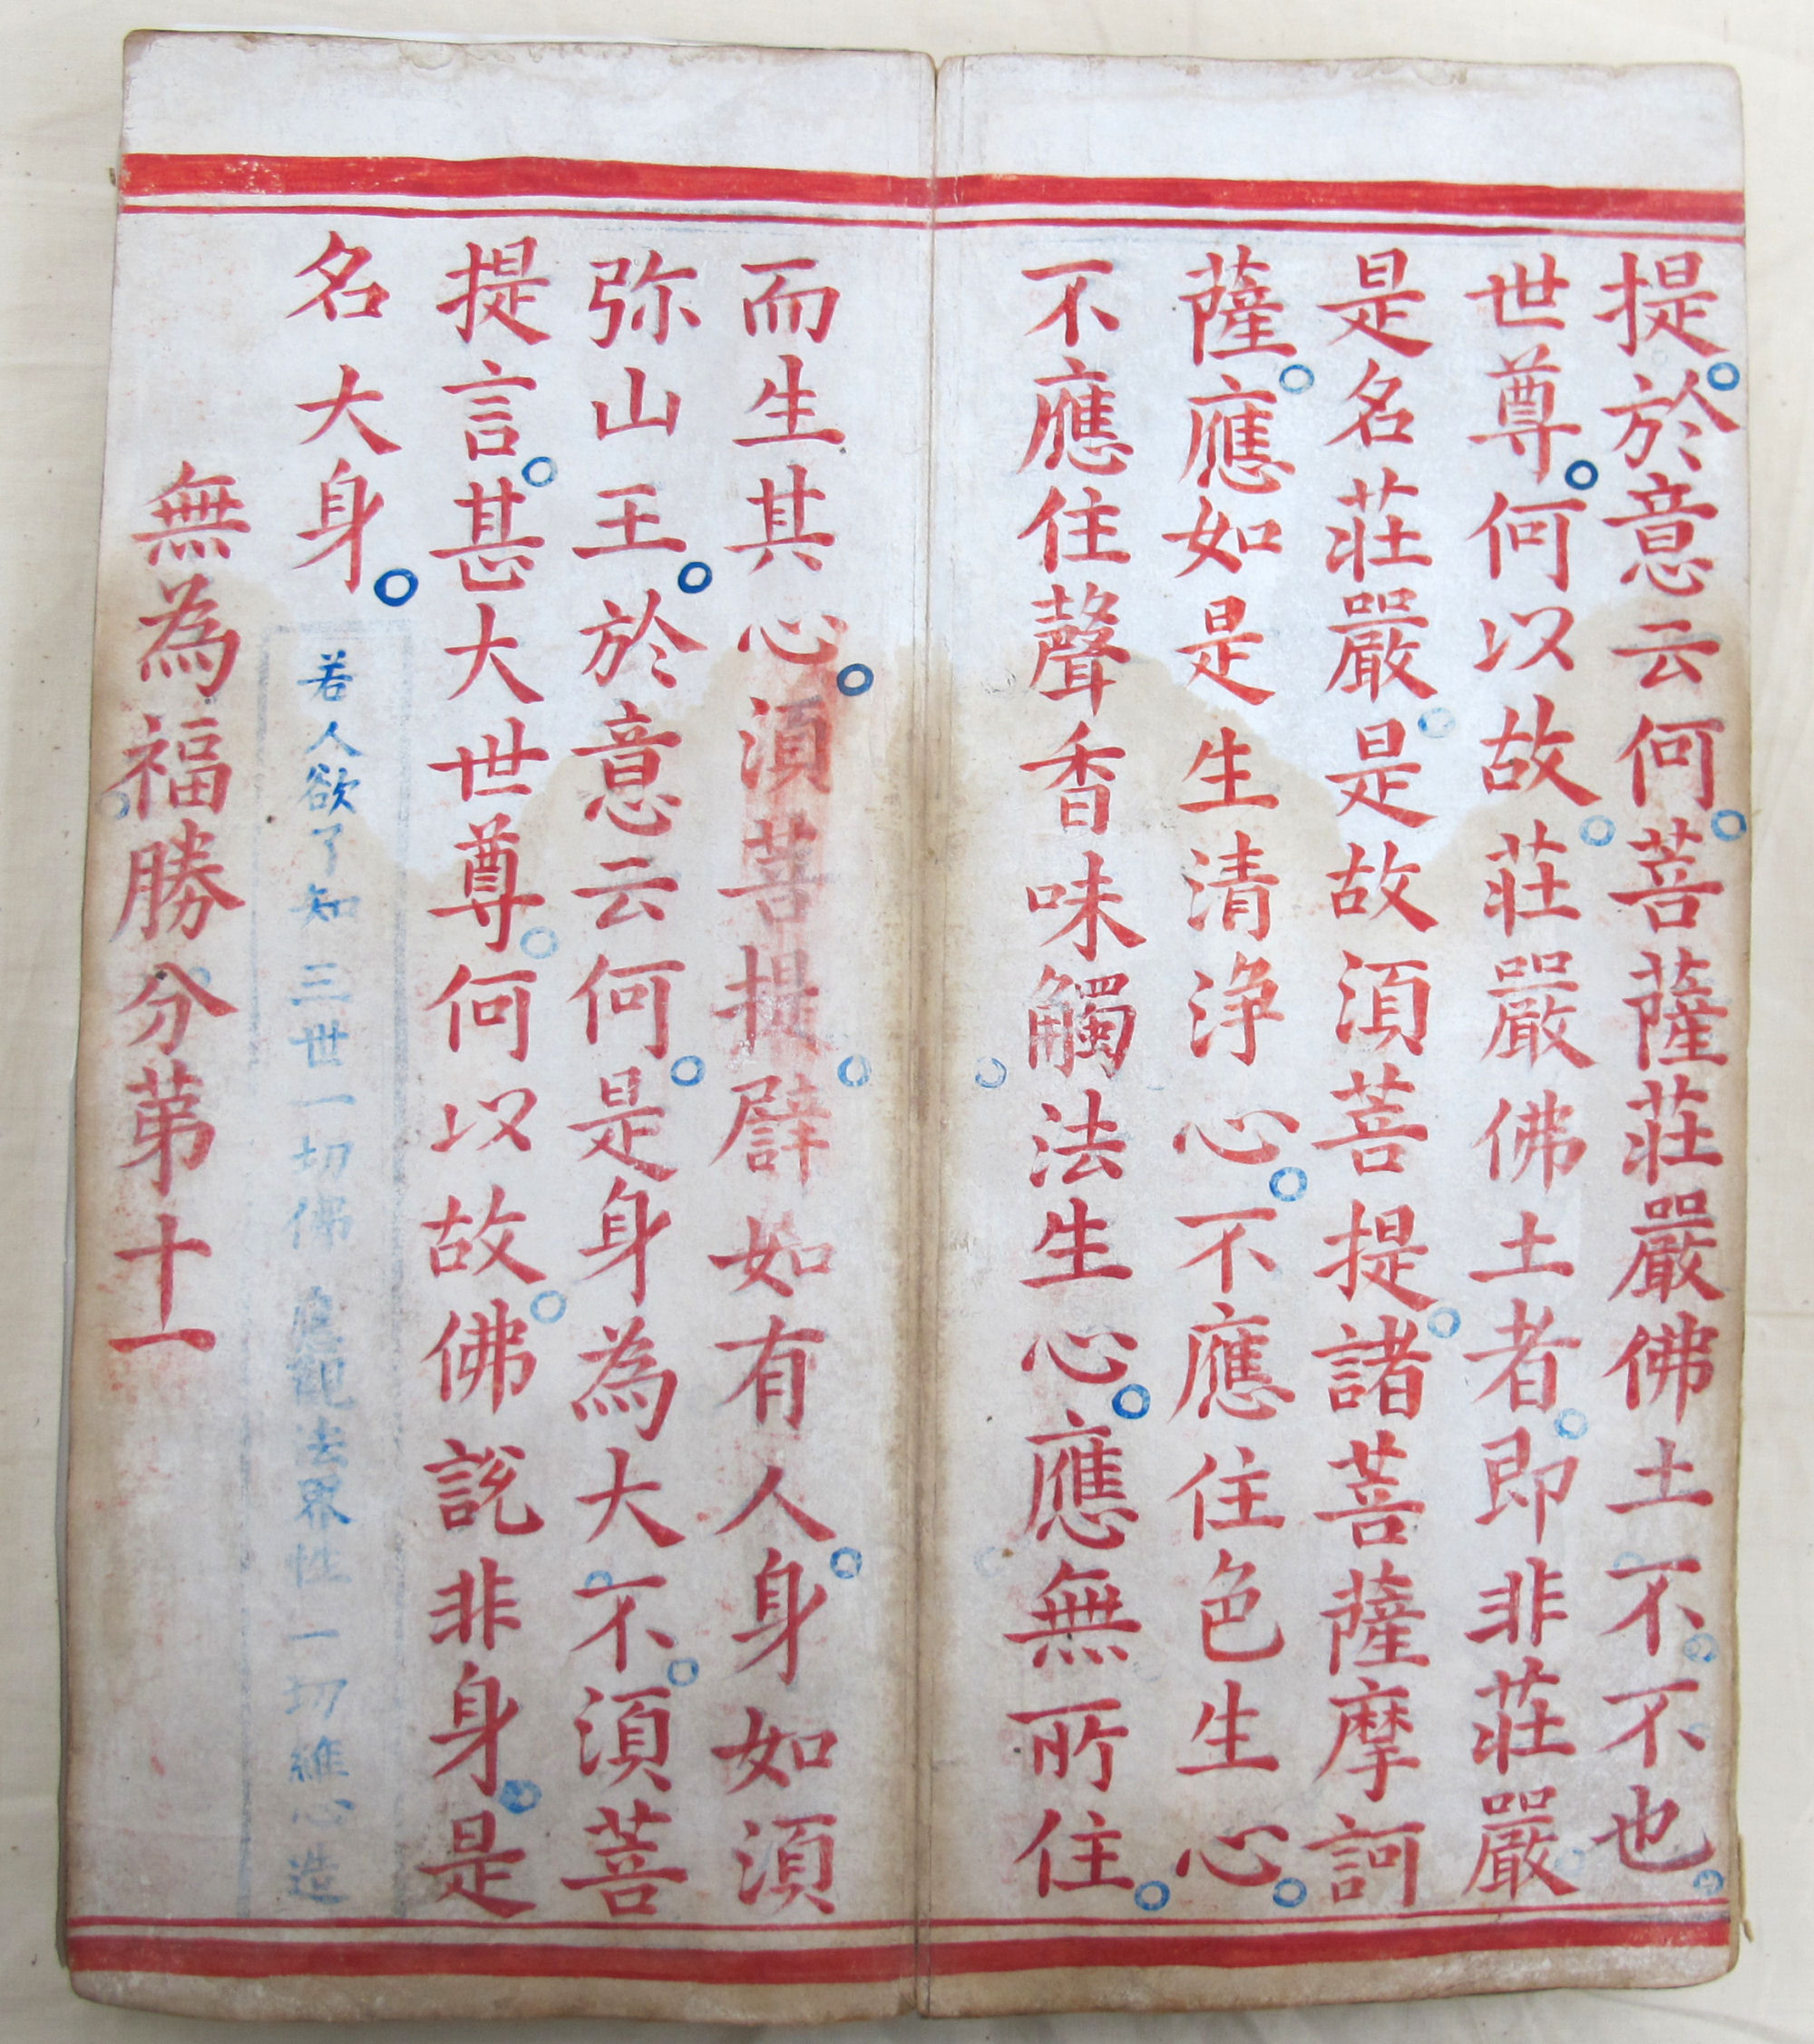 提。於意云何。菩薩莊嚴佛土不。不也。
世尊。何以故。莊嚴佛土者。即非莊嚴。
是名莊嚴。是故湏菩提。諸菩薩摩訶
薩。應如是生清淨心。不應住色生心。
不應住聲香味觸法生心。應無所住。
而生其心。湏菩提。譬如有人。身如湏
弥山王。於意云何。是身為大不。湏菩
提言。甚大世尊。何以故。佛說非身。是
名大身。
若人欲了知 三世一切佛 應觀法界性 一切維心造
無為福勝分第十一